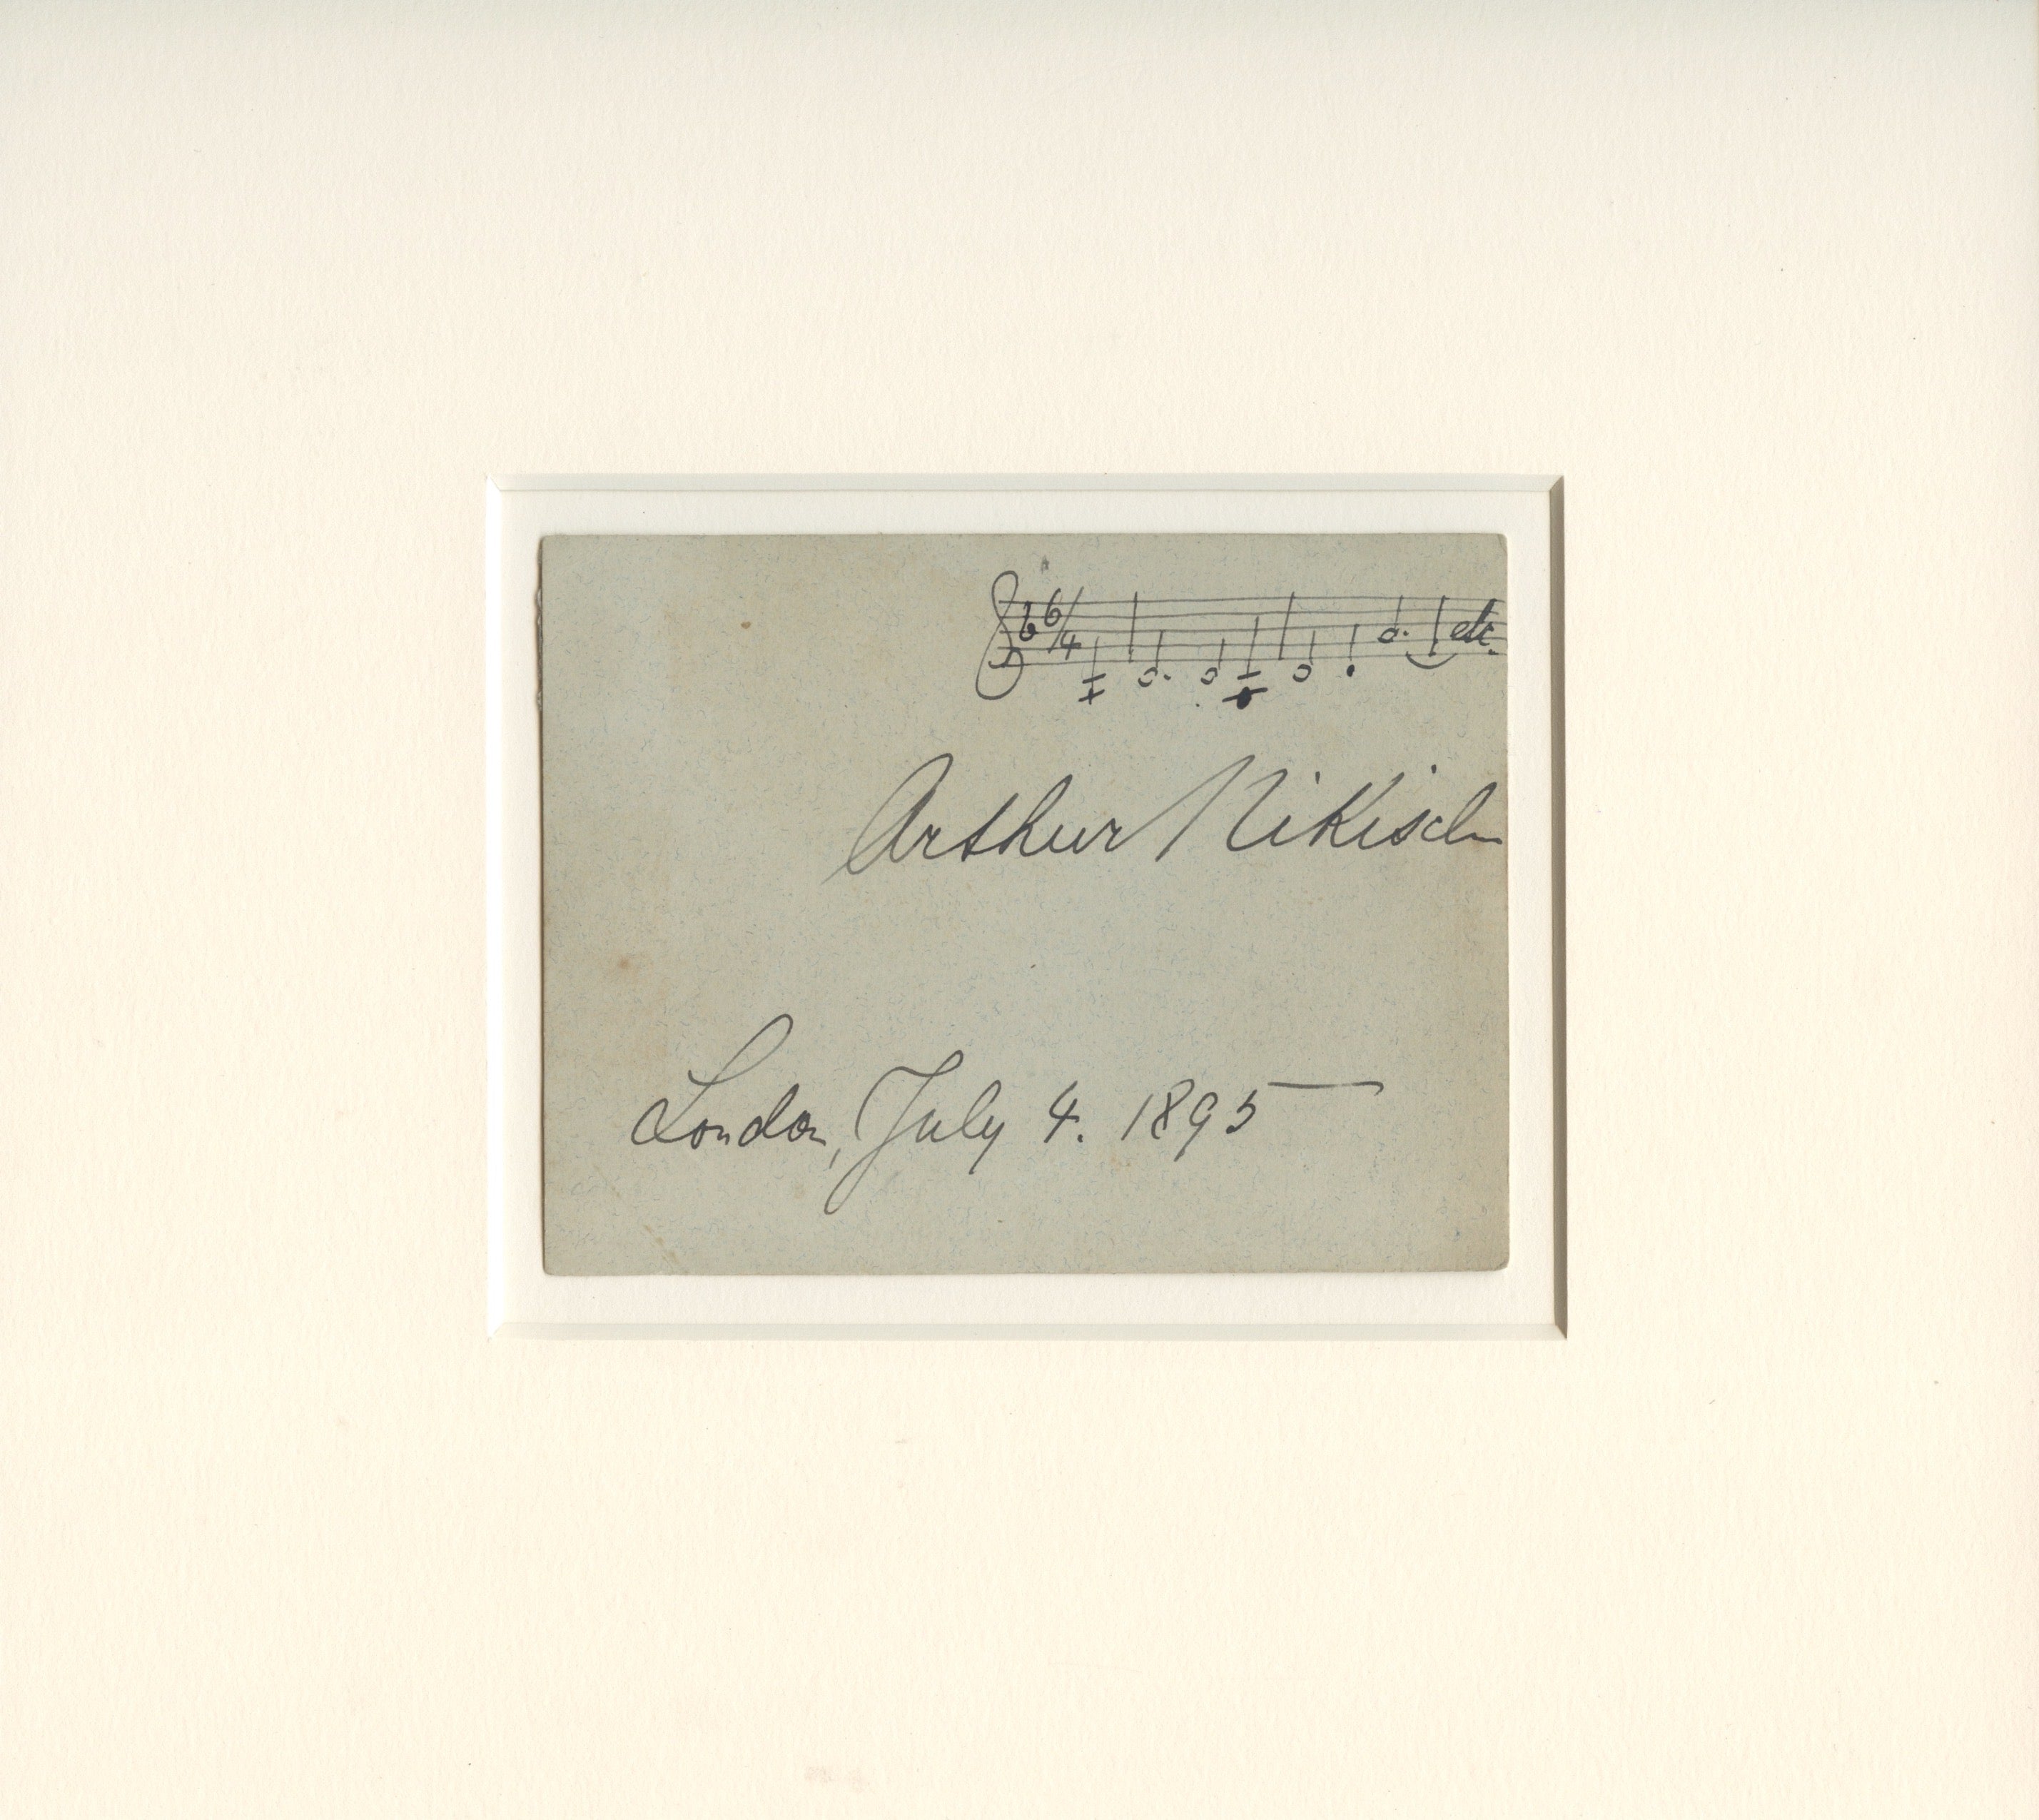 6/4 etc.
Arthur Nikisch
London, July 4. 1895